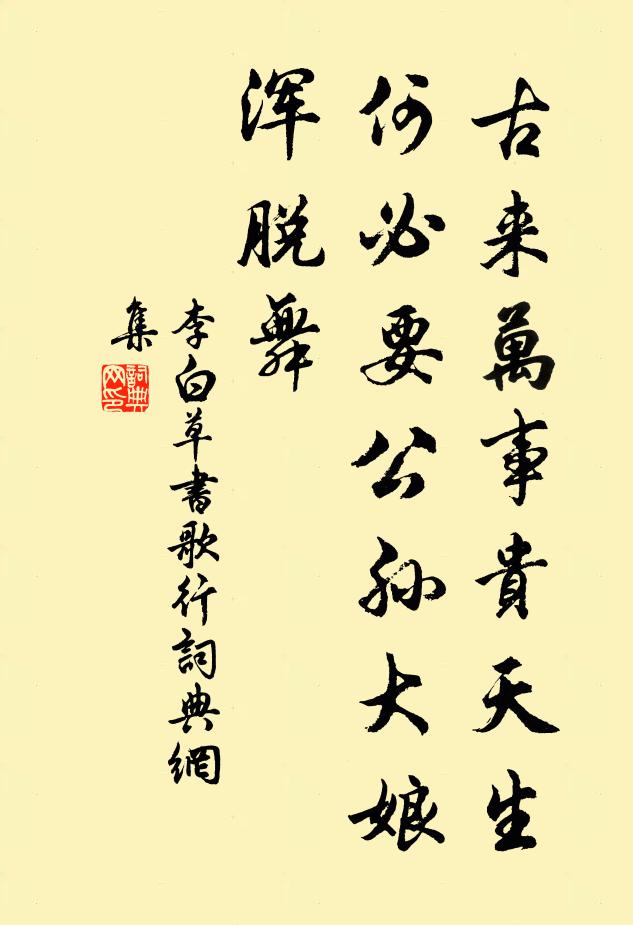 古来萬事貴天生
何必要公孙大娘
浑脱舞
李白草書歌行詞典網
集
詞典
网印